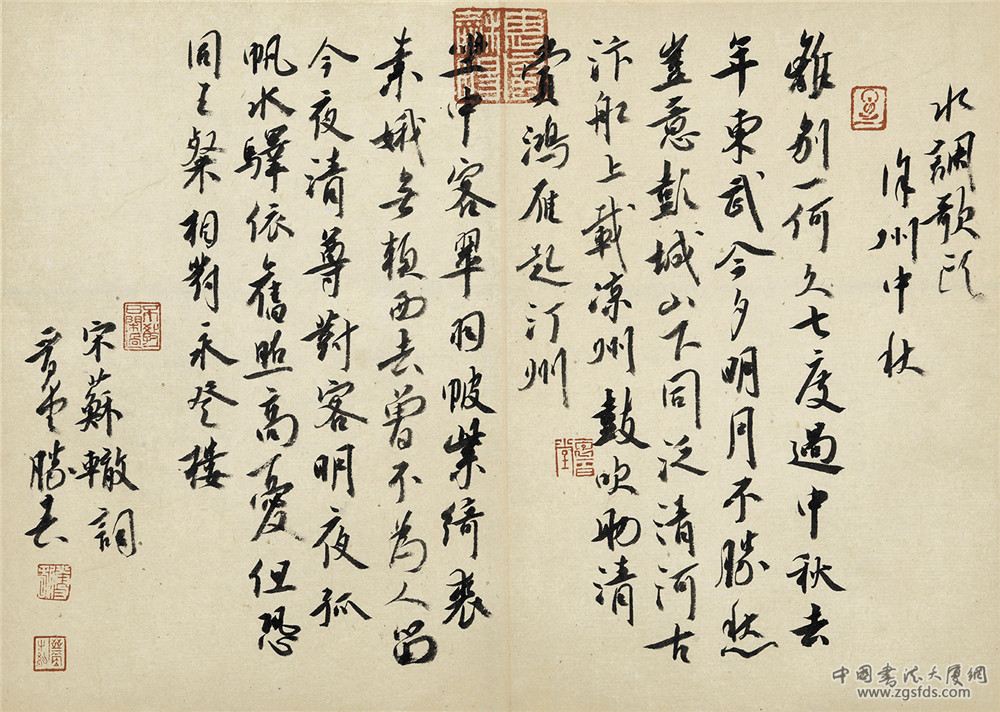 水調歌頭
徐州中秋
離別一何久七度過中秋去
年東武今夕明月不勝愁
豈意彭城山下同泛清河古
汴船上載涼州鼓吹助清
賞鴻雁起汀州
坐中客翠羽帔紫綺裘
素娥無賴西去曾不為人留
今夜清尊對客明夜孤
帆水驛依舊照高憂但恐
同王粲相對永登樓
宋蘇轍詞
中國書法大廈網
www.zgsfds.com